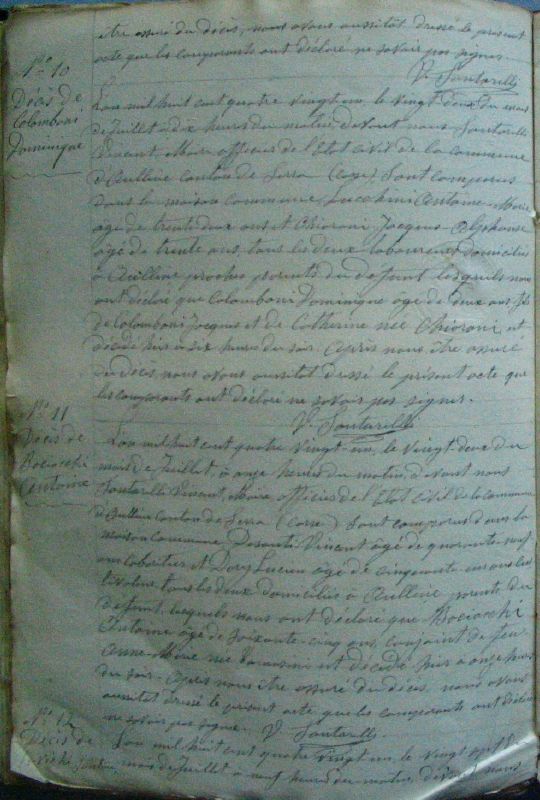 être assuré du décès, nous avons aussitôt dressé le présent
acte que les comparants ont déclaré ne savoir pas signer.
V. Santarelli
N° 10
Décès de
Colomboni
Dominique
L'an mil huit cent quatre vingt-un, le vingt deux du mois
de Juillet à dix heures du matin, devant nous Santarelli
Vincent, Maire officier de l'Etat civil de la commune
d'Aullène canton de Serra (Corse) sont comparus
dans la maison commune, Lucchini Antoine-Marie
âgé de trente deux ans et Chiaroni Jacques-Alphonse
âgé de trente ans, tous les deux laboureurs domiciliés
à Aullène proches parents du défunt lesquels nous
ont déclaré que Colomboni Dominique âgé de deux ans fils
de Colomboni Jacques et de Catherine née Chiaroni est
décédé hier à six heures du soir. Après nous être assuré
du décès, nous avons aussitôt dressé le présent acte que
les comparants ont déclaré ne savoir pas signer.
V. Santarelli
N° 11
Décès de
Bociocchi
Antoine
L'an mil huit cent quatre vingt-un, le vingt deux du
mois de Juillet, à onze heures du matin, devant nous
Santarelli Vincent, Maire officier de l'Etat civil de la commune
d'Aullène canton de Serra (Corse) sont comparus dans la
maison commune Vincent âgé de quarante neuf
ans et Lucien âgé de cinquante ans
tous les deux domiciliés à Aullène parents du
défunt, lesquels nous ont déclaré que Bociocchi
Antoine âgé de soixante-cinq ans, conjoint de feu
Anne-Marie née est décédé hier à onze heures
du soir. Après nous être assuré du décès, nous avons
aussitôt dressé le présent acte que les comparants ont déclaré
ne savoir pas signer. V. Santarelli
N° 12
Décès de
L'an mil huit cent quatre vingt un, le vingt sept du
mois de Juillet à neuf heures du matin, devant nous